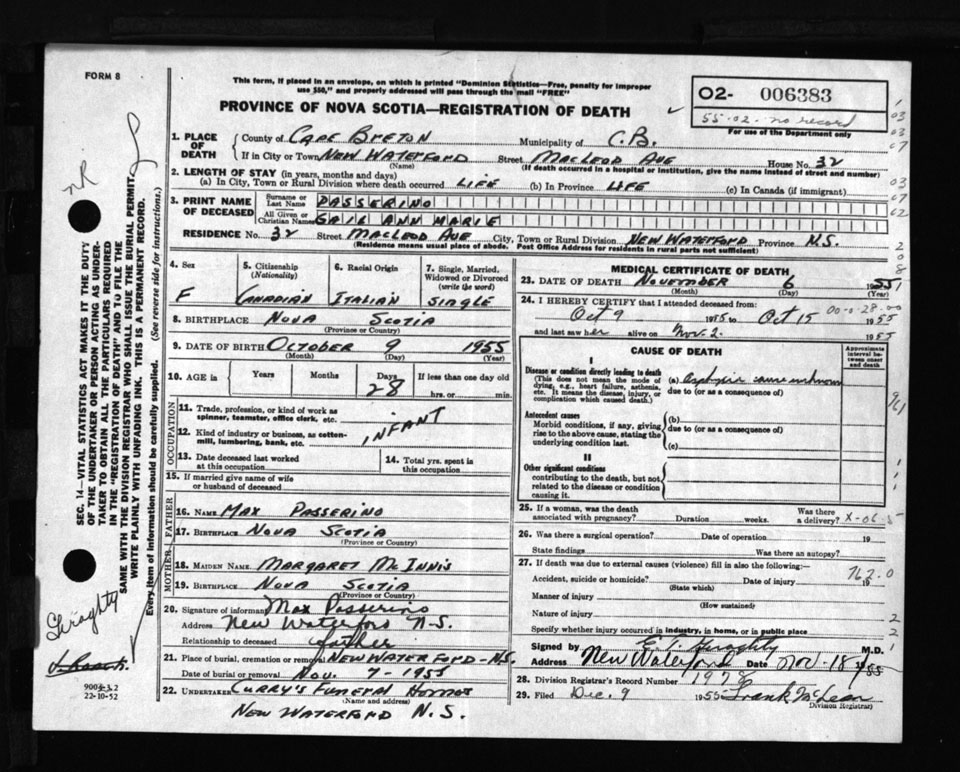 FORM 8
This form, if placed in an envelope, on which is printed "Dominion Statistics—Free, penalty for improper
use $50," and properly addressed will pass through the mail "FREE"
PROVINCE OF NOVA SCOTIA—REGISTRATION OF DEATH
02- 006383
55-02- no record
For use of the Department only
1. PLACE OF DEATH County of CAPE BRETON Municipality of C.B.
If in City or Town NEW WATERFORD Street MACLEOD AVE House No. 32
(Name) (If death occurred in a hospital or institution, give the name instead of street and number)
2. LENGTH OF STAY (in years, months and days)
(a) In City, Town or Rural Division where death occurred LIFE (b) In Province LIFE (c) In Canada (if immigrant)
3. PRINT NAME OF DECEASED Surname or Last Name PASSERINO
All Given or Christian Names GAIL ANN MARIE
RESIDENCE No. 32 Street MACLEOD AVE City, Town or Rural Division NEW WATERFORD Province N.S.
(Residence means usual place of abode. Post Office Address for residents in rural parts not sufficient)
4. Sex F
5. Citizenship (Nationality) CANADIAN
6. Racial Origin ITALIAN
7. Single, Married, Widowed or Divorced (write the word) SINGLE
8. BIRTHPLACE NOVA SCOTIA
(Province or Country)
9. DATE OF BIRTH OCTOBER 9 1955
(Month) (Day) (Year)
10. AGE in Years Months Days 28 If less than one day old
hrs. or min.
OCCUPATION
11. Trade, profession, or kind of work as spinner, teamster, office clerk, etc.
12. Kind of industry or business, as cotton-mill, lumbering, bank, etc. INFANT
13. Date deceased last worked at this occupation
14. Total yrs. spent in this occupation
15. If married give name of wife or husband of deceased
FATHER
16. NAME MAX PASSERINO
17. BIRTHPLACE NOVA SCOTIA
(Province or Country)
MOTHER
18. MAIDEN NAME MARGARET McINNIS
19. BIRTHPLACE NOVA SCOTIA
(Province or Country)
20. Signature of informant Max Passerino
Address New Waterford N.S.
Relationship to deceased father
21. Place of burial, cremation or removal NEW WATERFORD - N.S.
Date of burial or removal Nov. 7 - 1955
22. UNDERTAKER CURRY'S FUNERAL HOMES
(Name and address)
NEW WATERFORD N.S.
MEDICAL CERTIFICATE OF DEATH
23. DATE OF DEATH NOVEMBER 6 1955
(Month) (Day) (Year)
24. I HEREBY CERTIFY that I attended deceased from:
Oct 9 1955 to Oct 15 1955
00-0-28-00
and last saw her alive on Nov. 2 1955
CAUSE OF DEATH
Approximate interval between onset and death
I
Disease or condition directly leading to death
(This does not mean the mode of dying, e.g., heart failure, asthenia, etc. It means the disease, injury, or complication which caused death.)
(a) asphyxia cause unknown
due to (or as a consequence of)
Antecedent causes
Morbid conditions, if any, giving rise to the above cause, stating the underlying condition last.
(b)
due to (or as a consequence of)
(c)
II
Other significant conditions
contributing to the death, but not related to the disease or condition causing it.
25. If a woman, was the death associated with pregnancy? Duration weeks. Was there a delivery?
26. Was there a surgical operation? Date of operation 19
State findings Was there an autopsy?
27. If death was due to external causes (violence) fill in also the following:
Accident, suicide or homicide? Date of injury 19
762.0
(State which)
Manner of injury
(How sustained)
Nature of injury
Specify whether injury occurred in industry, in home, or in public place
Signed by M.D.
Address New Waterford Date Nov-18 1955
28. Division Registrar's Record Number 1978
29. Filed Dec. 9 1955 Frank McLean
Division Registrar
SEC. 14—VITAL STATISTICS ACT MAKES IT THE DUTY
OF THE UNDERTAKER OR PERSON ACTING AS UNDER-
TAKER TO OBTAIN ALL THE PARTICULARS REQUIRED
IN THE "REGISTRATION OF DEATH" AND TO FILE THE
SAME WITH THE DIVISION REGISTRAR WHO SHALL ISSUE THE BURIAL PERMIT.
WRITE PLAINLY WITH UNFADING INK. THIS IS A PERMANENT RECORD.
Every item of information should be carefully supplied. (See reverse side for instructions.)
9004-3.2
22-10-52